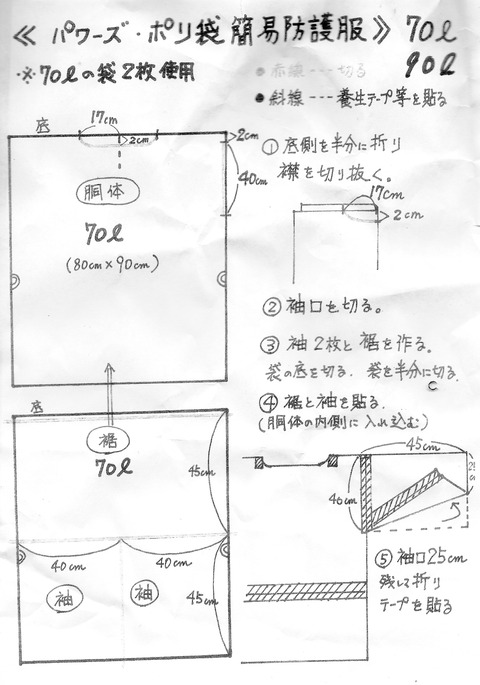 ≪ パワーズ・ポリ袋簡易防護服 ≫ 70ℓ
90ℓ
※ 70ℓの袋2枚使用
● 赤線 --- 切る
● 斜線 --- 養生テープ等を貼る
底
17cm
2cm
2cm
40cm
胴体
70ℓ
(80cm×90cm)
① 底側を半分に折り
襟を切り抜く。
17cm
2cm
② 袖口を切る。
③ 袖2枚と裾を作る。
袋の底を切る. 袋を半分に切る.
④ 裾と袖を貼る.
(胴体の内側に入れ込む)
底
裾
70ℓ
45cm
40cm
40cm
袖
袖
45cm
45cm
40cm
⑤ 袖口25cm
残して折り
テープを貼る